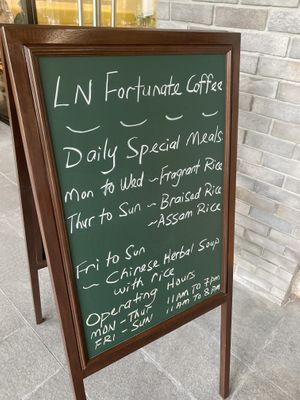 LN Fortunate Coffee
Daily Special Meals
Mon to Wed ~ Fragrant Rice
Thur to Sun ~ Braised Rice
~ Assam Rice
Fri to Sun
~ Chinese Herbal Soup
with rice
Operating Hours
MON - THUR 11AM TO 7PM
FRI - SUN 11AM TO 8PM